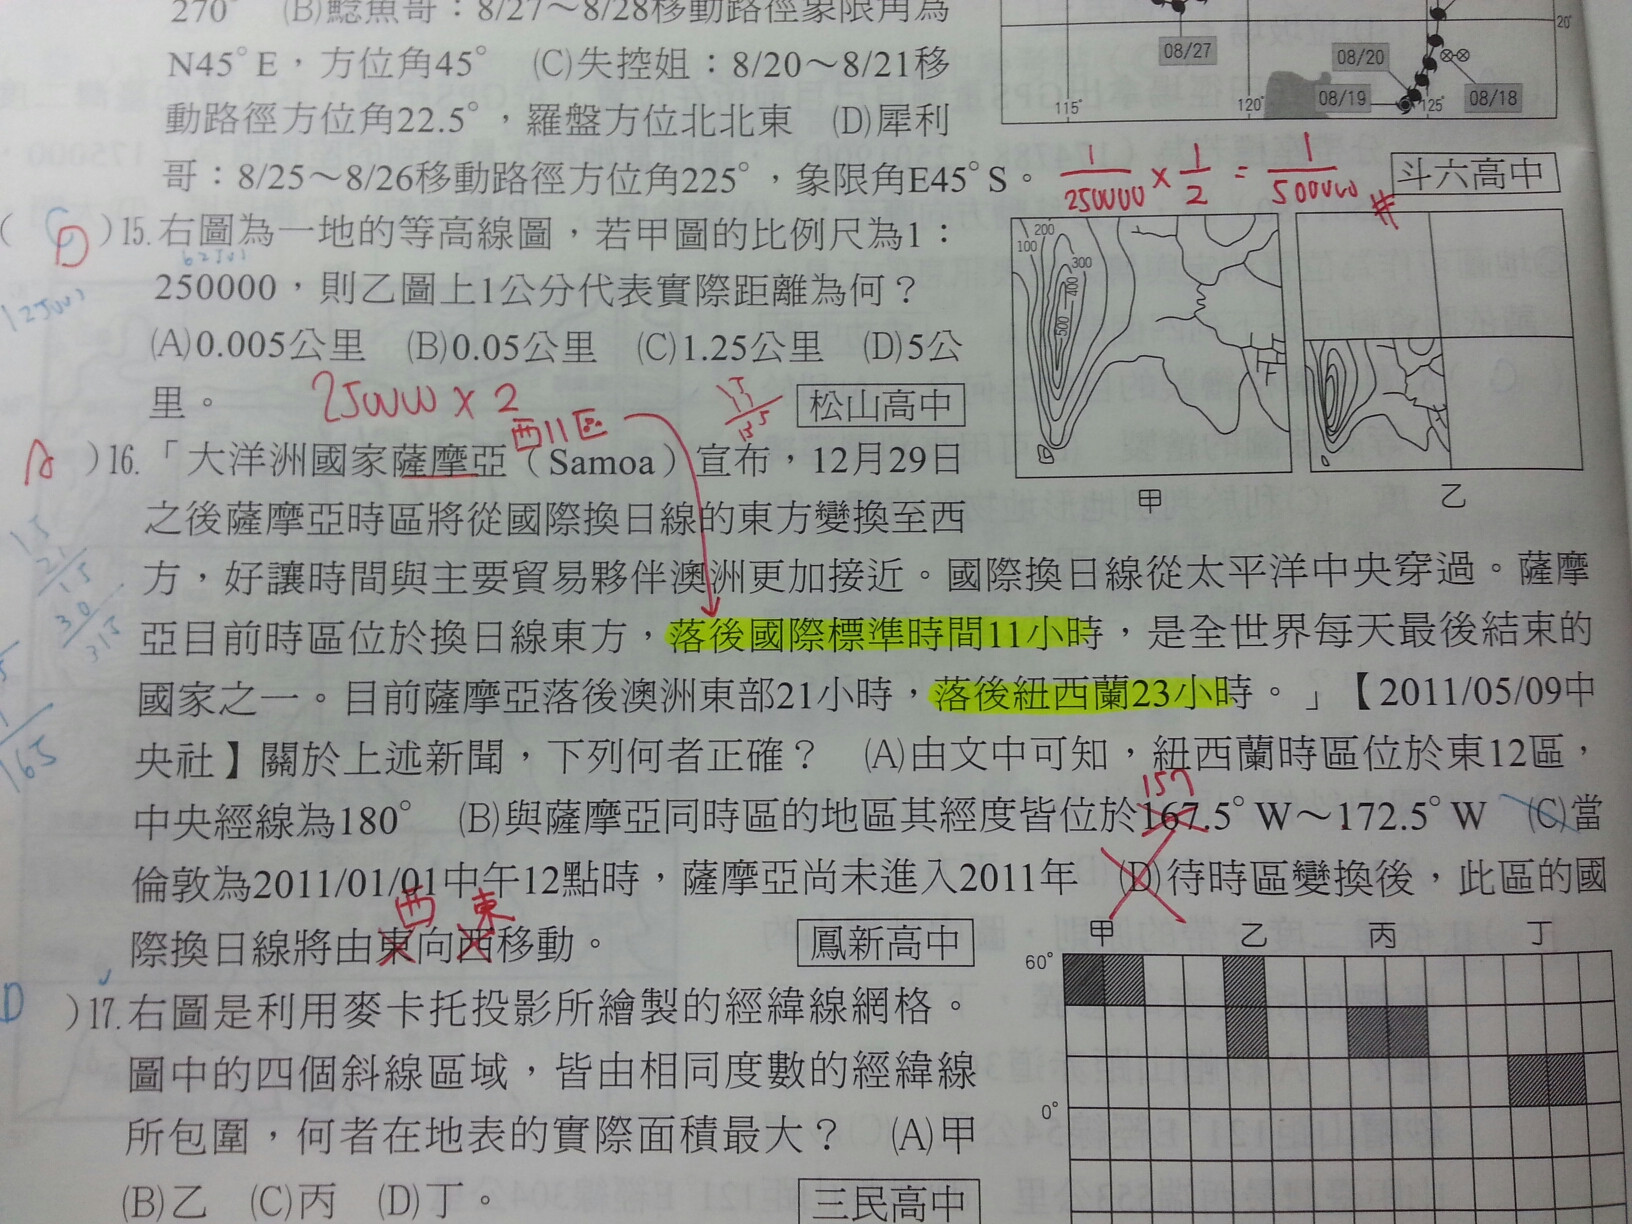 270° (B)鯰魚哥：8/27～8/28移動路徑象限角為
N45°E，方位角45° (C)失控姐：8/20～8/21移
動路徑方位角22.5°，羅盤方位北北東 (D)犀利
哥：8/25～8/26移動路徑方位角225°，象限角E45°S。
斗六高中
08/27
08/20
08/19
08/18
20°
115°
120°
125°
1/250000 × 1/2 = 1/500000 #
( D )15.右圖為一地的等高線圖，若甲圖的比例尺為1：
250000，則乙圖上1公分代表實際距離為何？
(A)0.005公里 (B)0.05公里 (C)1.25公里 (D)5公
里。
松山高中
250000 × 2
西11區
200
100
300
400
500
甲
乙
A )16.「大洋洲國家薩摩亞（Samoa）宣布，12月29日
之後薩摩亞時區將從國際換日線的東方變換至西
方，好讓時間與主要貿易夥伴澳洲更加接近。國際換日線從太平洋中央穿過。薩摩
亞目前時區位於換日線東方，落後國際標準時間11小時，是全世界每天最後結束的
國家之一。目前薩摩亞落後澳洲東部21小時，落後紐西蘭23小時。」【2011/05/09中
央社】關於上述新聞，下列何者正確？ (A)由文中可知，紐西蘭時區位於東12區，
中央經線為180° (B)與薩摩亞同時區的地區其經度皆位於167.5°W～172.5°W (C)當
157
倫敦為2011/01/01中午12點時，薩摩亞尚未進入2011年 (D)待時區變換後，此區的國
西 東
際換日線將由東向西移動。
鳳新高中
15
21
15
30
315
165
D )17.右圖是利用麥卡托投影所繪製的經緯線網格。
圖中的四個斜線區域，皆由相同度數的經緯線
所包圍，何者在地表的實際面積最大？ (A)甲
(B)乙 (C)丙 (D)丁。
三民高中
甲 乙 丙 丁
60°
0°